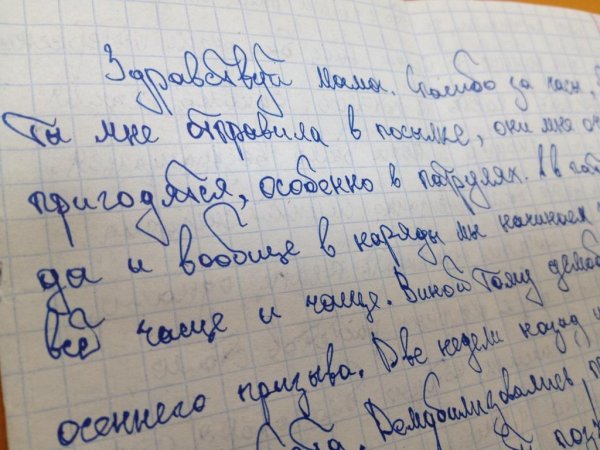 Здравствуй мама. Спасибо за часы,
Ты мне отправила в посылке, они мне
пригодятся, особенно в патрулях. А в
да и вообще в наряды мы начинаем
всё чаще и чаще. Виной тому
осеннего призыва. Две недели назад
Демобилизовались,